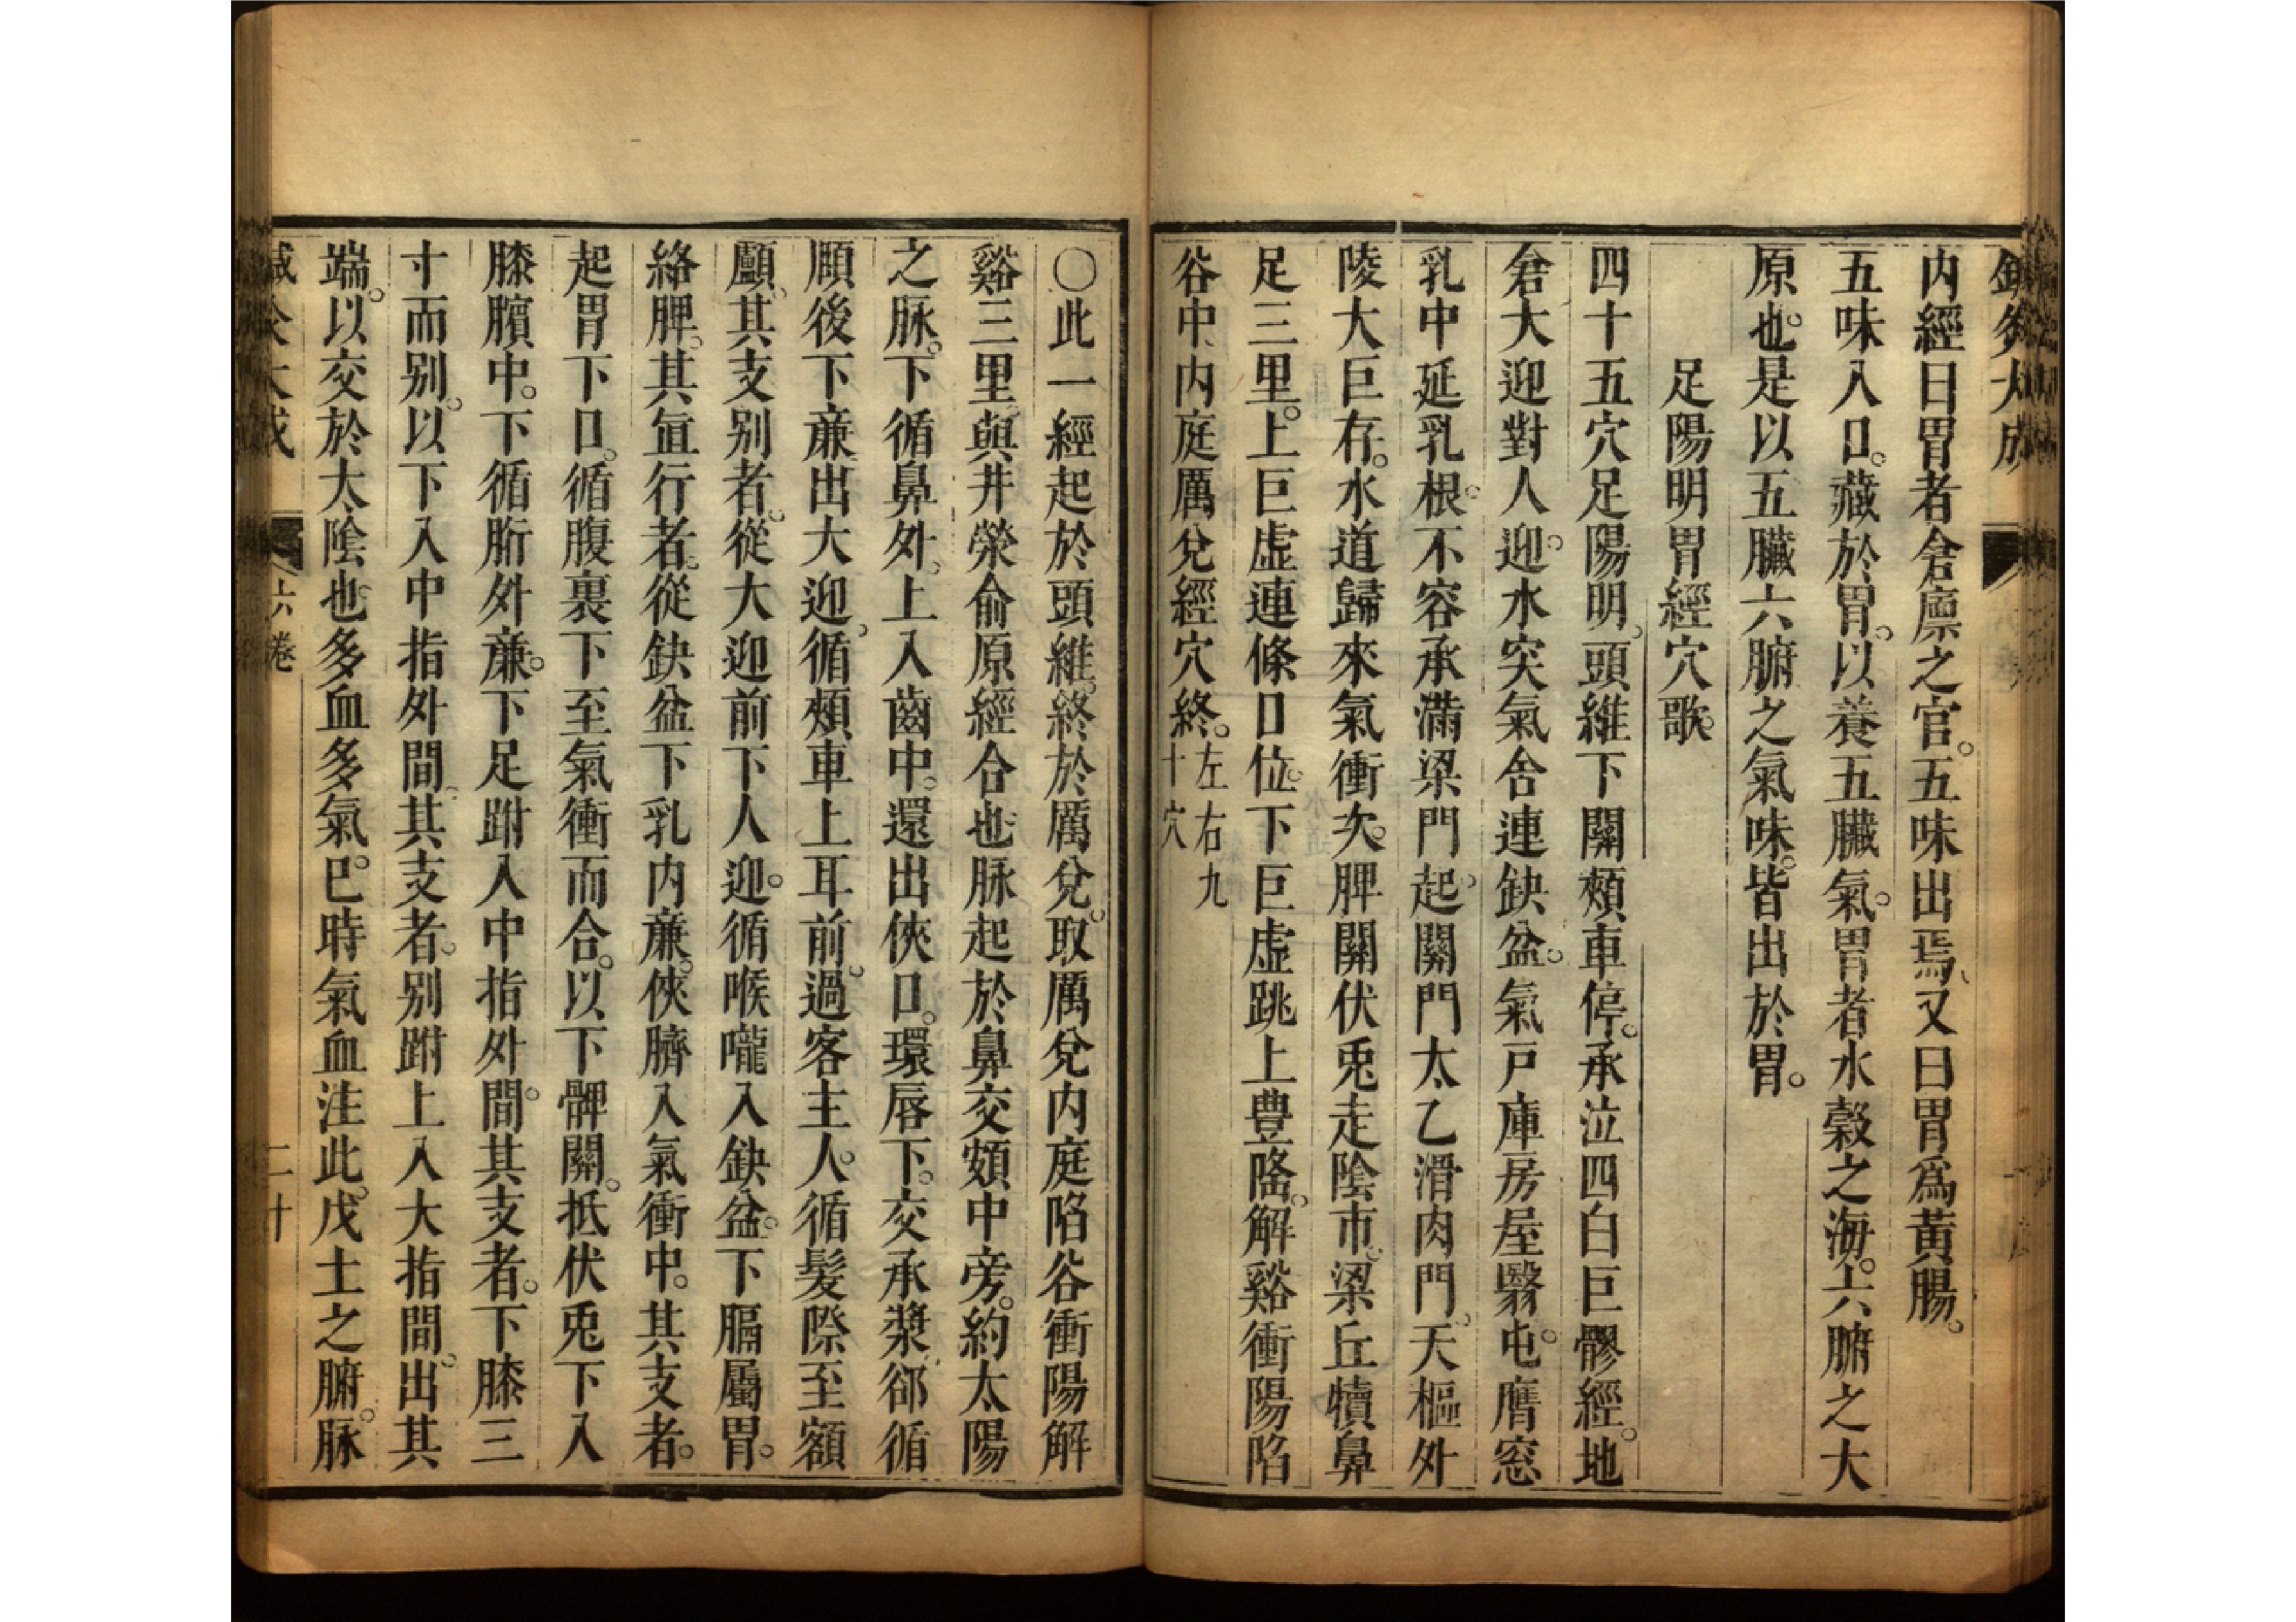 鍼灸大成
内經曰胃者倉廪之官。五味出焉、又曰胃爲黃腸。
五味入口。藏於胃。以養五臟氣。胃者水穀之海。六腑之大
原也。是以五臟六腑之氣味。皆出於胃。
足陽明胃經穴歌。
四十五穴足陽明。頭維下關頰車停。承泣四白巨髎經。地
倉大迎對人迎。水突氣舍連缺盆。氣戸庫房屋翳屯。膺窓
乳中延乳根。不容承滿梁門起。關門太乙滑肉門。天樞外
陵大巨存。水道歸來氣衝次。脾關伏兎走陰市。梁丘犢鼻
足三里。上巨虚連條口位。下巨虚跳上豊隆。解谿衝陽陷
谷中、内庭厲兌經穴終。左右九
十穴
〇此一經起於頭維。終於厲兌。取厲兌内庭陷谷衝陽解
谿三里。與井滎俞原經合也。脉起於鼻交頞中旁。約太陽
之脉。下循鼻外。上入齒中。還出俠口。環唇下。交承漿。郤循
頤後下亷。出大迎。循頰車上耳前。過客主人。循髪際至額
顱。其支别者。從大迎前下人迎。循喉嚨入缺盆。下膈屬胃。
絡脾。其直行者。從缺盆下乳内亷。俠臍入氣衝中。其支者。
起胃下口。循腹裏下至氣衝而合。以下髀關。抵伏兎下入
膝臏中。下循胻外亷。下足跗入中指外間。其支者。下膝三
寸而别。以下入中指外間。其支者。别跗上入大指間。出其
端。以交於太陰也。多血多氣。巳時氣血注此。戊土之腑。脉
鍼灸大成
六卷
二十